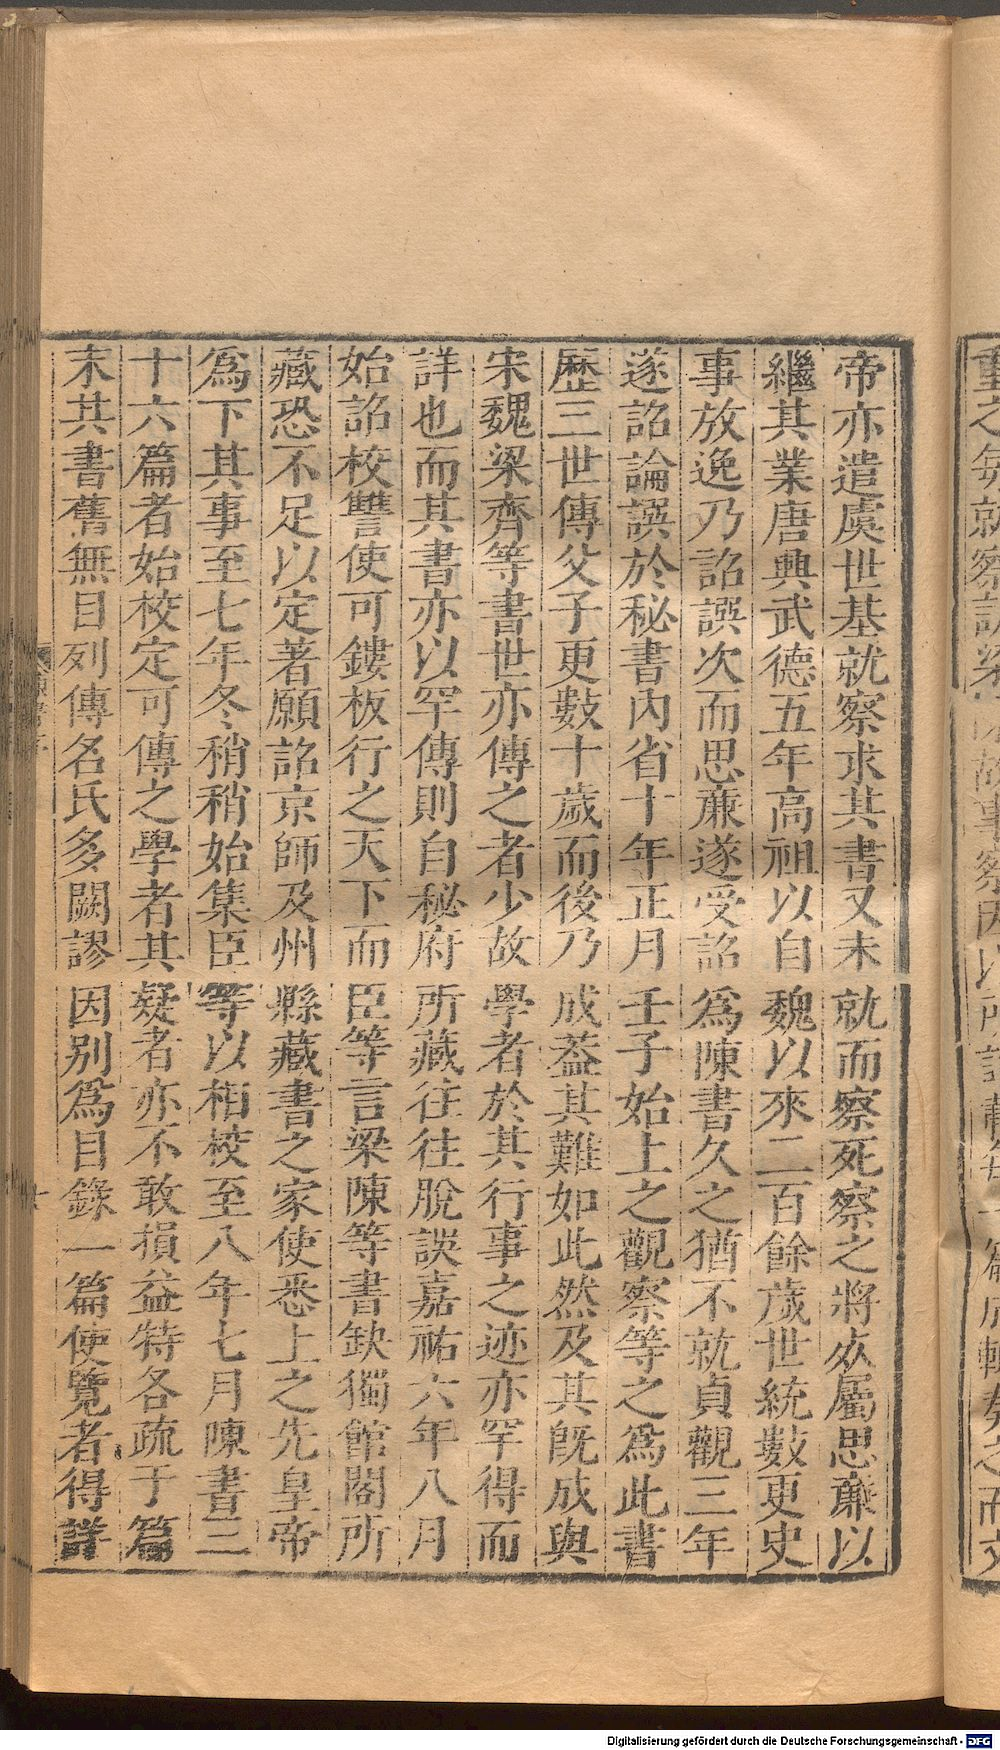 帝亦遣虞世基就察求其書又未就而察死察之將死屬思廉以
繼其業唐興武德五年高祖以自魏以來二百餘歲世統數更史
事放逸乃詔譔次而思廉遂受詔爲陳書久之猶不就貞觀三年
遂詔論譔於秘書內省十年正月壬子始上之觀察等之爲此書
歷三世傳父子更數十歲而後乃成葢其難如此然及其旣成與
宋魏梁齊等書世亦傳之者少故學者於其行事之迹亦罕得而
詳也而其書亦以罕傳則自秘府所藏往往脫誤嘉祐六年八月
始詔校讐使可鏤板行之天下而臣等言梁陳等書缺獨館閣所
藏恐不足以定著願詔京師及州縣藏書之家使悉上之先皇帝
爲下其事至七年冬稍稍始集臣等以相校至八年七月陳書三
十六篇者始校定可傳之學者其疑者亦不敢損益特各疏于篇
末其書舊無目列傳名氏多闕謬因别爲目錄一篇使覽者得詳
Digitalisierung gefördert durch die Deutsche Forschungsgemeinschaft - DFG